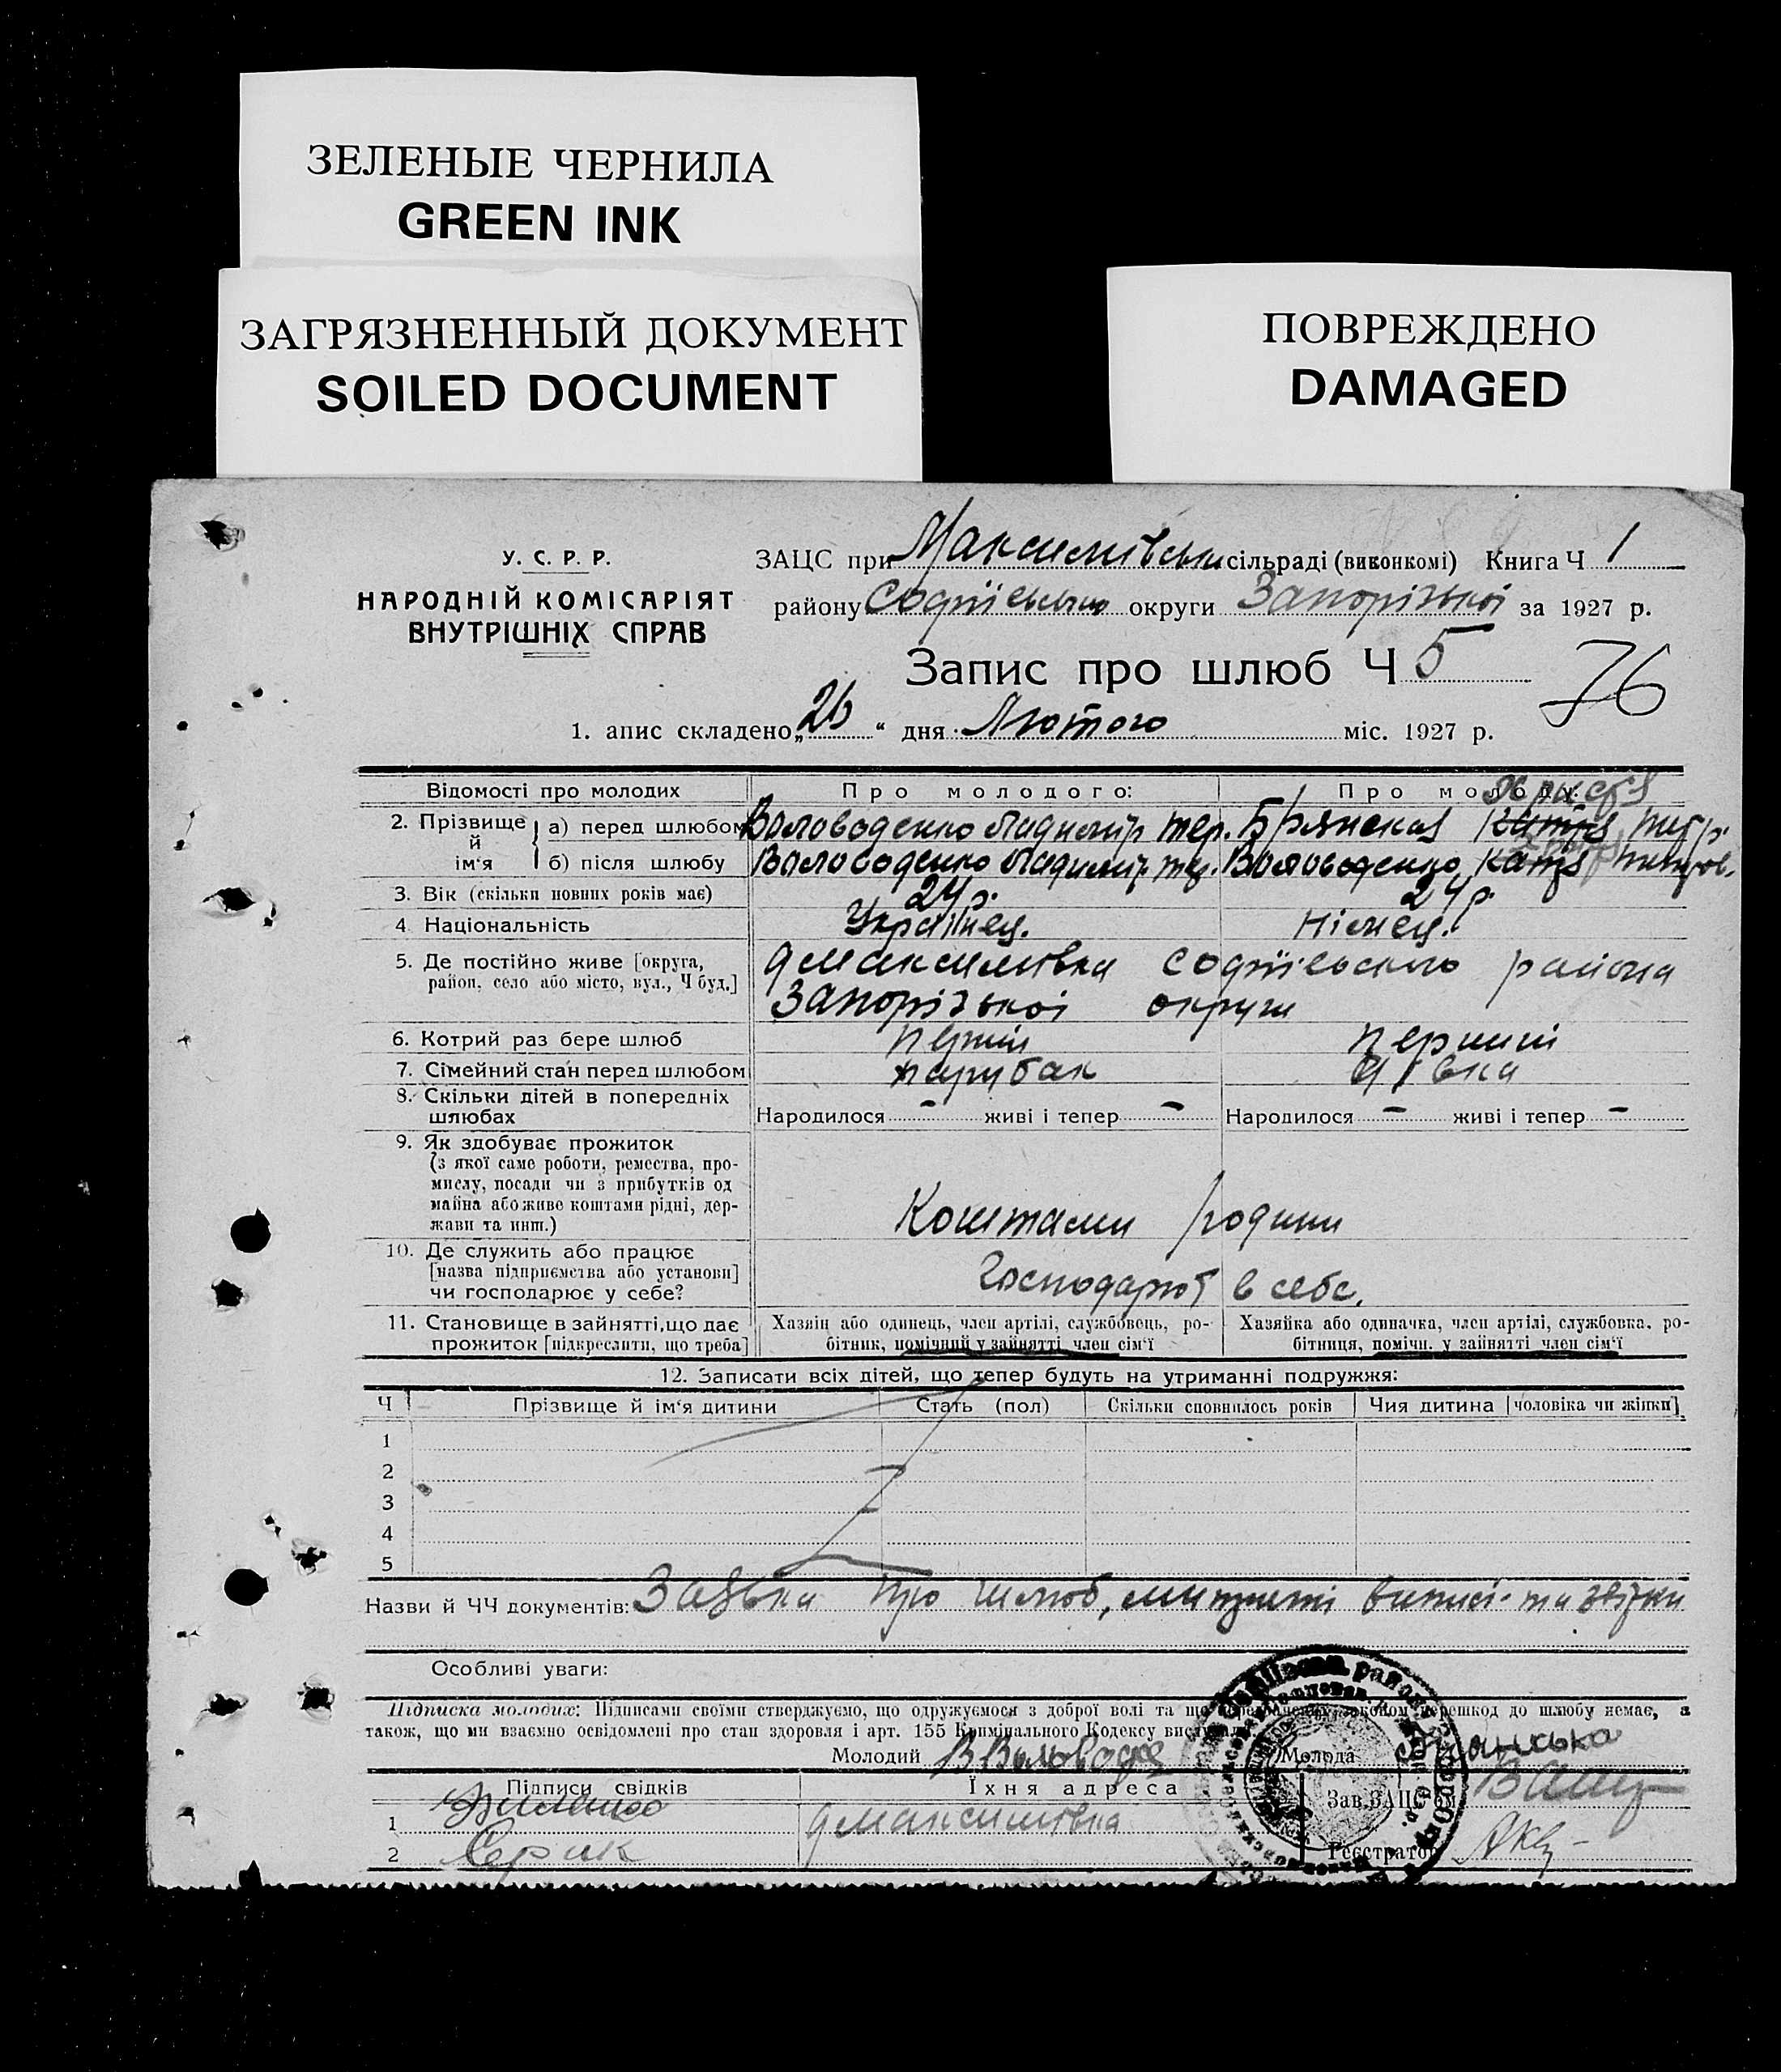 ЗЕЛЕНЫЕ ЧЕРНИЛА
GREEN INK
ЗАГРЯЗНЕННЫЙ ДОКУМЕНТ
SOILED DOCUMENT
ПОВРЕЖДЕНО
DAMAGED
У. С. Р. Р.
НАРОДНІЙ КОМІСАРІЯТ
ВНУТРІШНІХ СПРАВ
ЗАЦС при Максимівськ сільраді (виконкомі) Книга Ч 1
району Софіївсько округи Запорізької за 1927 р.
Запис про шлюб Ч 5
76
1. апис складено „26“ дня Лютого міс. 1927 р.
Відомості про молодих Про молодого: Про молоду:
Христя
2. Прізвище й ім'я а) перед шлюбом Воловоденко Ладимір тер. Брянская Катря
б) після шлюбу Воловоденко Ладимір Воловоденко Катря
3. Вік (скільки повних років має) 24 р. 24 р.
4 Національність Українец. Німец.
5. Де постійно живе [округа, район, село або місто, вул., Ч буд.] Максимівка Софіївского района
Запорізької округи
6. Котрий раз бере шлюб перший перший
7. Сімейний стан перед шлюбом парубак дівка
8. Скільки дітей в попередніх шлюбах Народилося - живі і тепер - Народилося - живі і тепер -
9. Як здобуває прожиток
(з якої саме роботи, ремества, про-
мислу, посади чи з прибутків од
майна або живе коштами рідні, дер-
жави та инш.) Коштами родини
10. Де служить або працює
[назва підприємства або установи]
чи господарює у себе? Господарют в себе.
11. Становище в зайнятті, що дає
прожиток [підкреслити, що треба]
Хазяїн або одинець, член артілі, службовець, ро-
бітник, помічний у зайнятті член сім'ї
Хазяйка або одиначка, член артілі, службовка, ро-
бітниця, помічн. у зайнятті член сім'ї
12. Записати всіх дітей, що тепер будуть на утриманні подружжя:
Ч Прізвище й ім'я дитини Стать (пол) Скільки сповнилось років Чия дитина [чоловіка чи жінки]
1
2
3
4
5
Назви й ЧЧ документів: Заявка про шлюб, метричні виписі та звірки
Особливі уваги:
Підписка молодих: Підписами своїми стверджуємо, що одружуємося з доброї волі та що законом перешкод до шлюбу немає, а
також, що ми взаємно освідомлені про стан здоровля і арт. 155 Кримінального Кодексу
Молодий В Воловоде Молода
Підписи свідків Їхня адреса Зав. ЗАЦС'ом
1 Максимівка
2 Серик Реєстратор